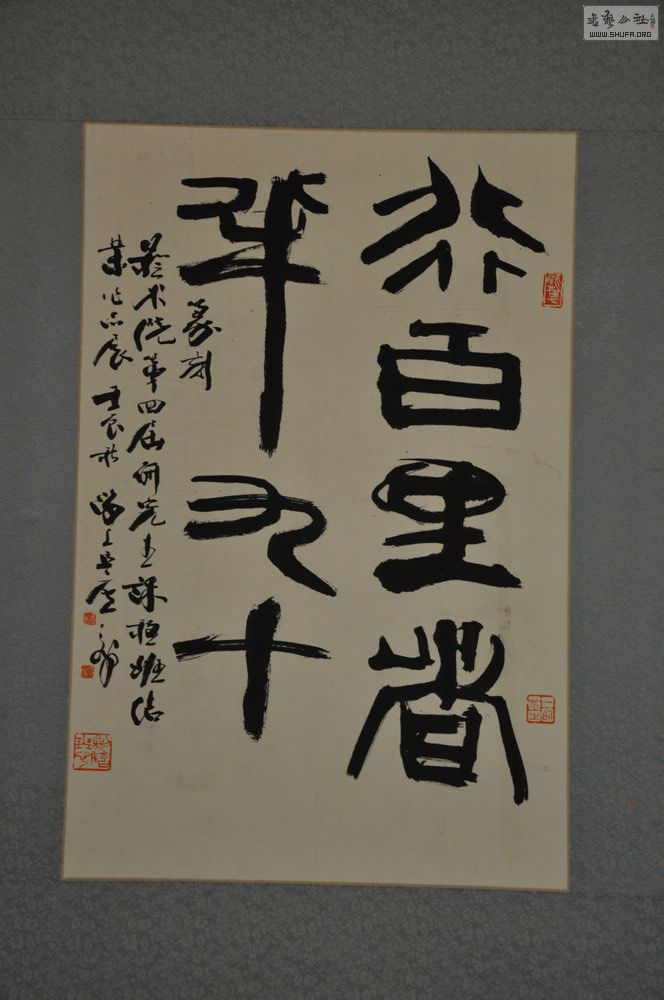 行百里者
半九十
篆刻
艺术院第四届研究生课程班结
业作品展 壬辰秋
书艺公社
WWW.SHUFA.ORG